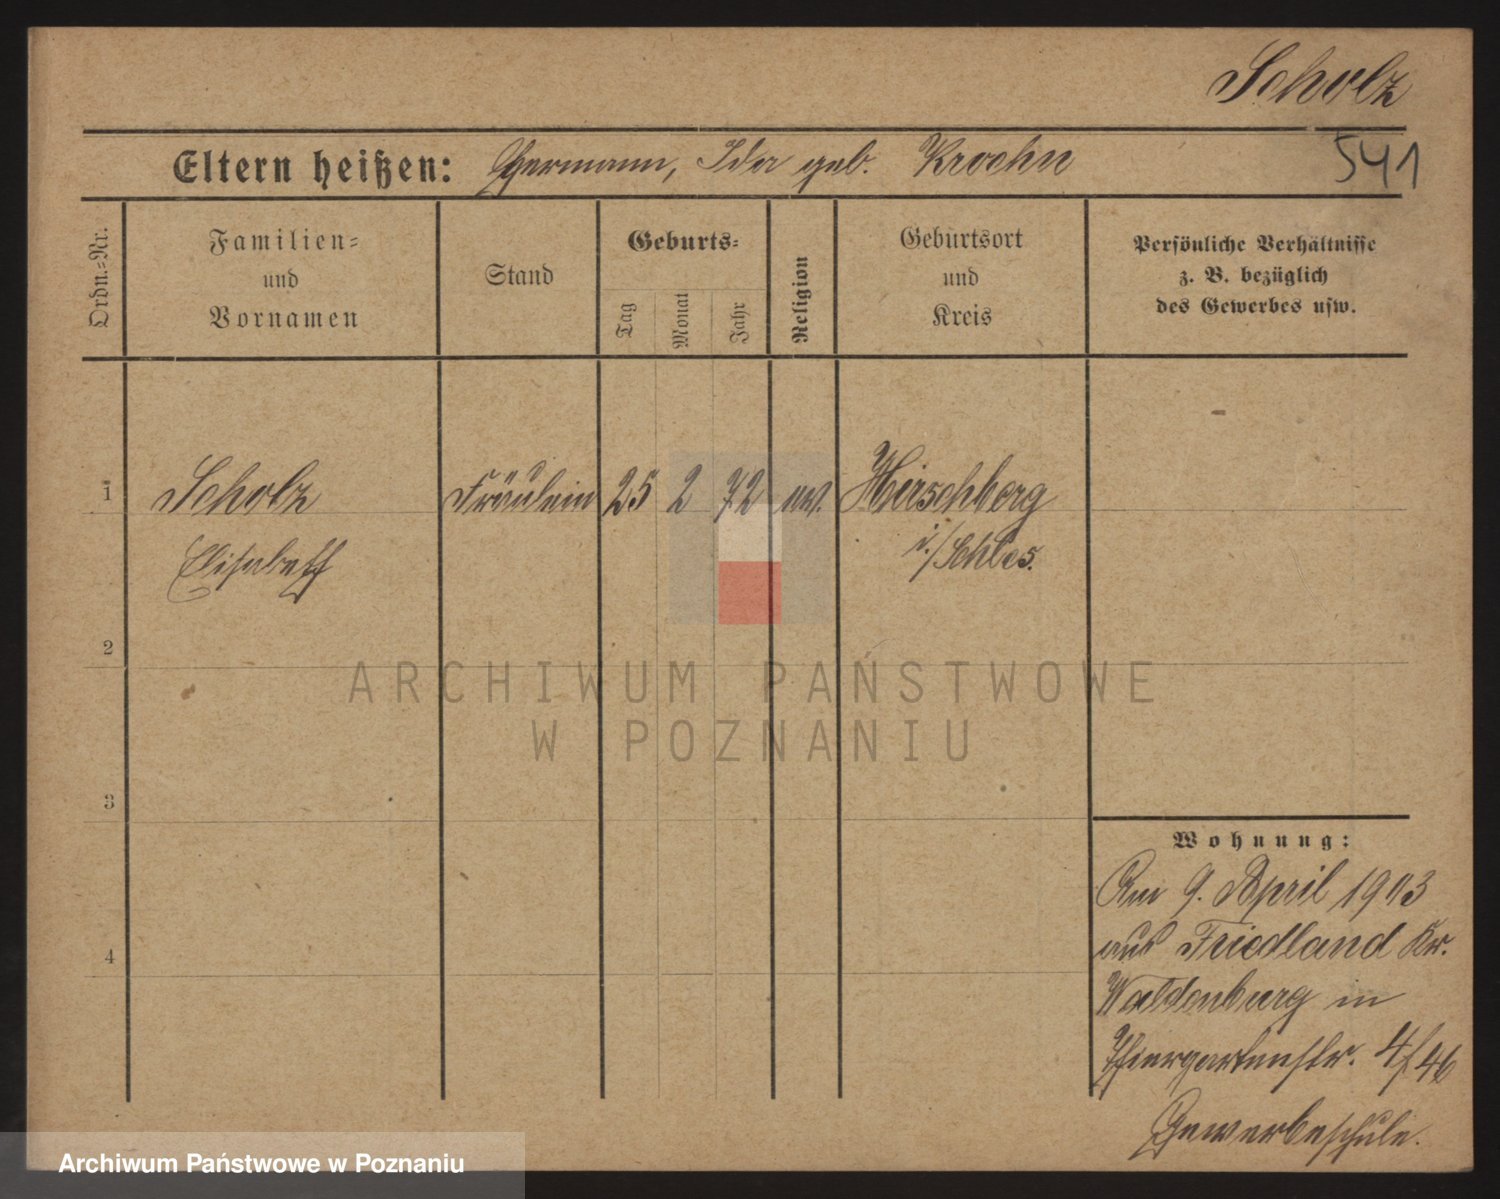 Scholz
Eltern heißen: Hermann, Ida geb. Kroehn
541
Ordn.-Nr.
Familien-
und
Vornamen
Stand
Geburts-
Tag
Monat
Jahr
Religion
Geburtsort
und
Kreis
Persönliche Verhältnisse
z. B. bezüglich
des Gewerbes usw.
1
Scholz
Elisabeth
Fräulein
25
2
72
ev.
Hirschberg
i./Schles.
2
3
4
Wohnung:
Am 9. April 1903
aus Friedland Kr.
Waldenburg in
Thiergartenstr. 4/46
Gewerbeschule.
ARCHIWUM PAŃSTWOWE
W POZNANIU
Archiwum Państwowe w Poznaniu